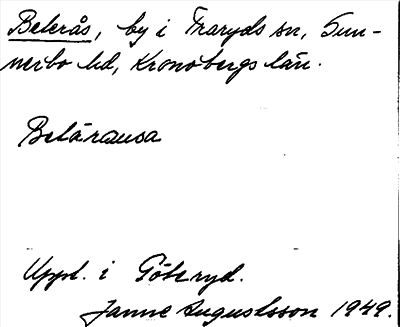 Belerås, by i Traryds sn, Sun-
nerbo hd, Kronobergs län.
Belärausa
Uppt. i Göteryd.
Janne Augustsson 1949.